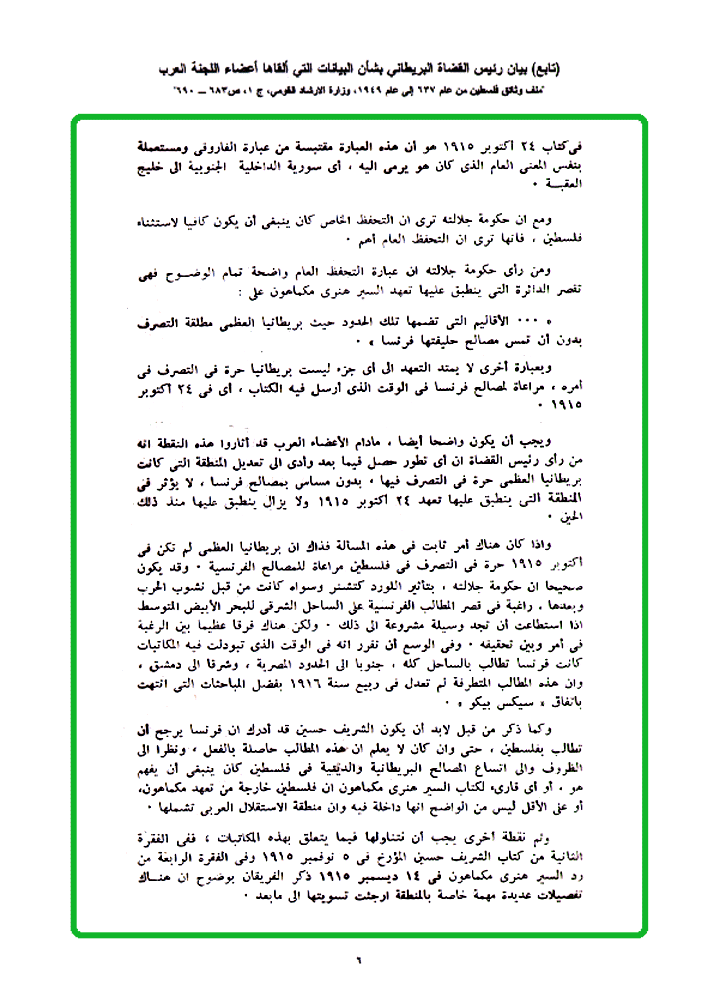 (تابع) بيان رئيس القضاة البريطاني بشأن البيانات التي ألقاها أعضاء اللجنة العرب
"ملف وثائق فلسطين من عام ٦٣٧ إلى عام ١٩٤٩، وزارة الارشاد القومي، ج ١، ص ٦٨٣ – ٦٩٠"
فى كتاب ٢٤ أكتوبر ١٩١٥ هو أن هذه العبارة مقتبسة من عبارة الفاروقى ومستعملة
بنفس المعنى العام الذى كان هو يرمى اليه ، أى سورية الداخلية الجنوبية الى خليج
العقبة ٠
ومع ان حكومة جلالته ترى ان التحفظ الخاص كان ينبغى أن يكون كافيا لاستثناء
فلسطين ، فانها ترى ان التحفظ العام أهم ٠
ومن رأى حكومة جلالته ان عبارة التحفظ العام واضحة تمام الوضــوح فهى
تقصر الدائرة التى ينطبق عليها تعهد السير هنرى مكماهون على :
« ٠٠٠ الأقاليم التى تضمها تلك الحدود حيث بريطانيا العظمى مطلقة التصرف
بدون أن تمس مصالح حليفتها فرنسا » ٠
وبعبارة أخرى لا يمتد التعهد الى أى جزء ليست بريطانيا حرة فى التصرف فى
أمره ، مراعاة لمصالح فرنسا فى الوقت الذى أرسل فيه الكتاب ، أى فى ٢٤ أكتوبر
١٩١٥ ٠
ويجب أن يكون واضحا أيضا ، مادام الأعضاء العرب قد أثاروا هذه النقطة انه
من رأى رئيس القضاة ان أى تطور حصل فيما بعد وأدى الى تعديل المنطقة التى كانت
بريطانيا العظمى حرة فى التصرف فيها ، بدون مساس بمصالح فرنسا ، لا يؤثر فى
المنطقة التى ينطبق عليها تعهد ٢٤ أكتوبر ١٩١٥ ولا يزال ينطبق عليها منذ ذلك
الحين ٠
واذا كان هناك أمر ثابت فى هذه المسألة فذاك ان بريطانيا العظمى لم تكن فى
أكتوبر ١٩١٥ حرة فى التصرف فى فلسطين مراعاة للمصالح الفرنسية ٠ وقد يكون
صحيحا ان حكومة جلالته ، بتأثير اللورد كتشنر وسواه كانت من قبل نشوب الحرب
وبعدها ، راغبة فى قصر المطالب الفرنسية على الساحل الشرقى للبحر الأبيض المتوسط
اذا استطاعت أن تجد وسيلة مشروعة الى ذلك ٠ ولكن هناك فرقا عظيما بين الرغبة
فى أمر وبين تحقيقه ٠ وفى الوسع أن نقرر انه فى الوقت الذى تبودلت فيه المكاتبات
كانت فرنسا تطالب بالساحل كله ، جنوبا الى الحدود المصرية ، وشرقا الى دمشق ،
وان هذه المطالب المتطرفة لم تعدل فى ربيع سنة ١٩١٦ بفضل المباحثات التى انتهت
باتفاق « سيكس بيكو » ٠
وكما ذكر من قبل لابد أن يكون الشريف حسين قد أدرك ان فرنسا يرجح أن
تطالب بفلسطين ، حتى وان كان لا يعلم ان هذه المطالب حاصلة بالفعل ، ونظرا الى
الظروف والى اتساع المصالح البريطانية والدينية فى فلسطين كان ينبغى أن يفهم
هو ، أو أى قارىء لكتاب السير هنرى مكماهون ان فلسطين خارجة من تعهد مكماهون،
أو على الأقل ليس من الواضح انها داخلة فيه وان منطقة الاستقلال العربى تشملها ٠
وثم نقطة أخرى يجب أن نتناولها فيما يتعلق بهذه المكاتبات ، ففى الفقرة
الثانية من كتاب الشريف حسين المؤرخ فى ٥ نوفمبر ١٩١٥ وفى الفقرة الرابعة من
رد السير هنرى مكماهون فى ١٤ ديسمبر ١٩١٥ ذكر الفريقان بوضوح ان هنــاك
تفصيلات عديدة مهمة خاصة بالمنطقة ارجئت تسويتها الى مابعد ٠
٦